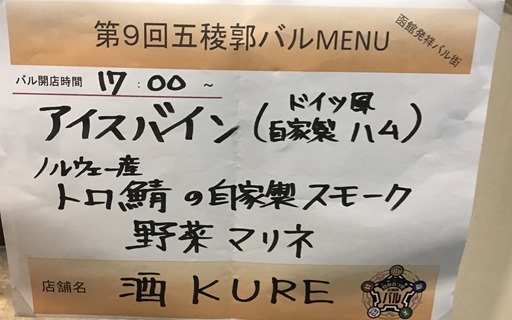 第9回五稜郭バルMENU
函館発祥バル街
バル開店時間 17:00~
アイスバイン(ドイツ風自家製ハム)
ノルウェー産
トロ鯖の自家製スモーク
野菜マリネ
店舗名 酒 KURE
バル